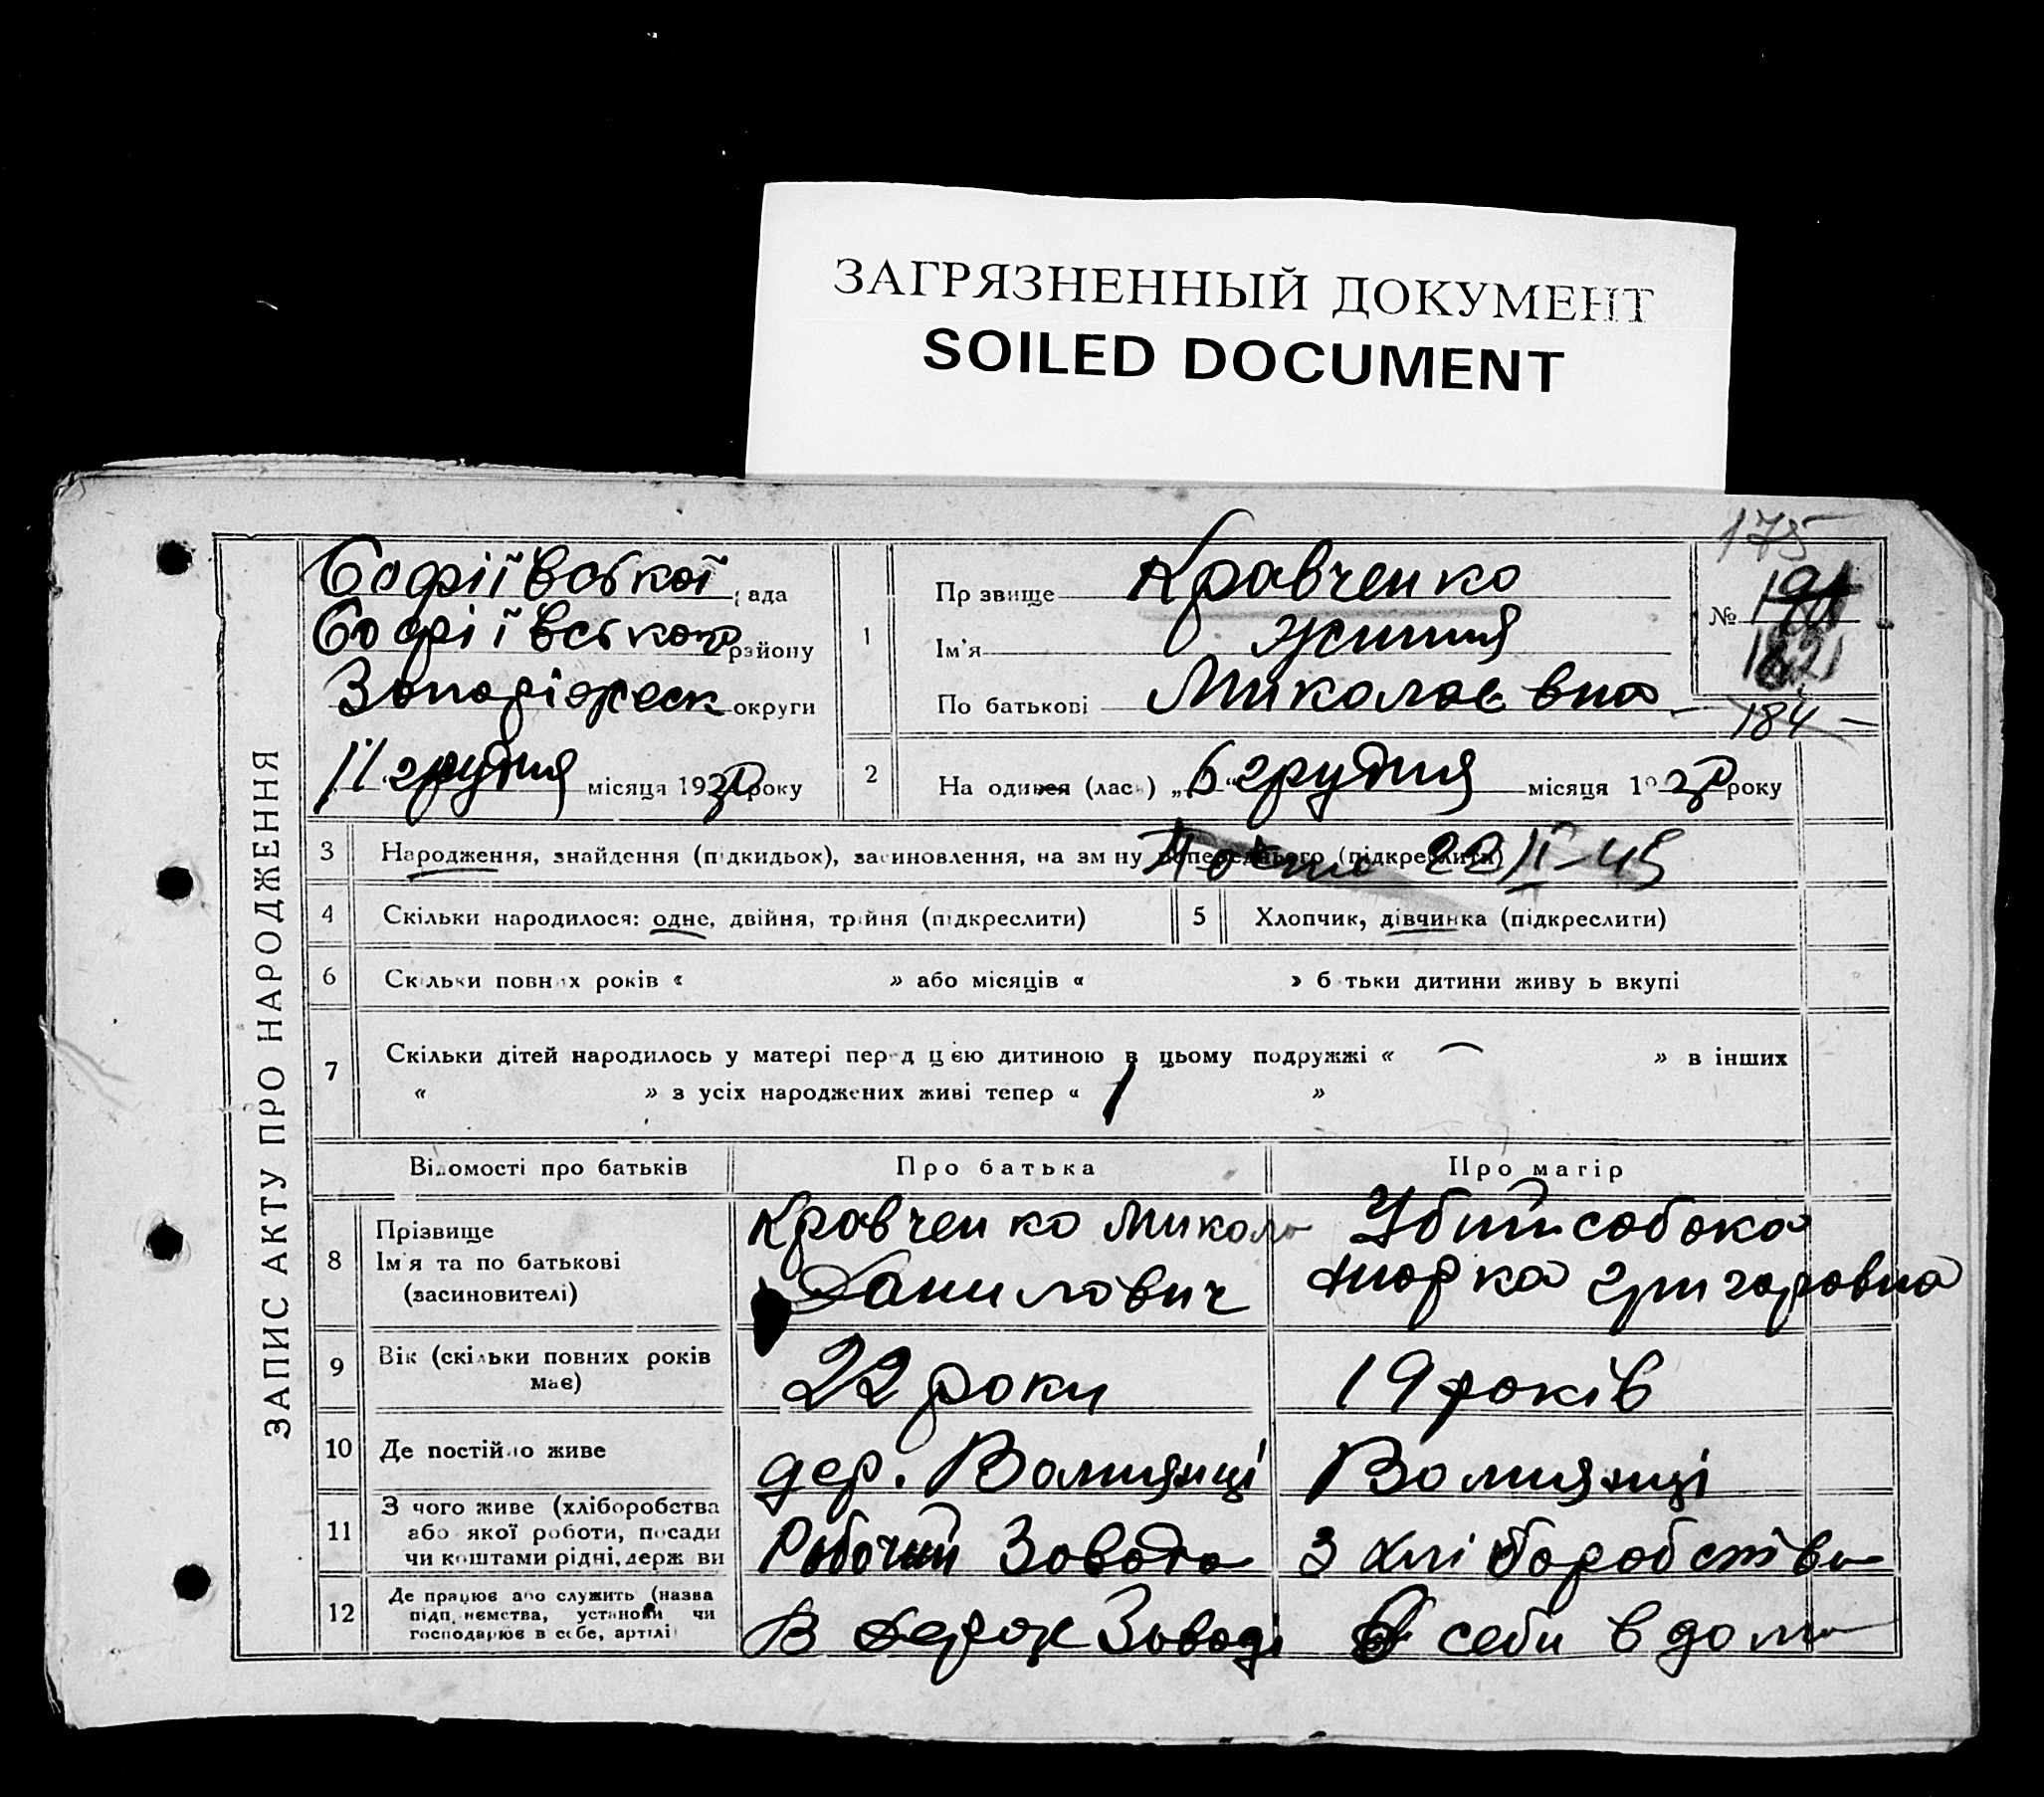 ЗАГРЯЗНЕННЫЙ ДОКУМЕНТ
SOILED DOCUMENT
ЗАПИС АКТУ ПРО НАРОДЖЕННЯ
Софіївської рада
Софіївського району
Запоріжськ округи
11 грудня місяця 19 року
175
1 Прізвище Кравченко
Ім'я
По батькові Миколаєвна
№
182
184
2 Народився (лась) „6" грудня місяця 19 року
3 Народження, знайдення (підкидьок), засиновлення, на зміну попереднього (підкреслити) 22/II-45
4 Скільки народилося: одне, двійня, трійня (підкреслити)
5 Хлопчик, дівчинка (підкреслити)
6 Скільки повних років « » або місяців « » батьки дитини живуть вкупі
7 Скільки дітей народилось у матері перед цією дитиною в цьому подружжі « — » в інших
« » з усіх народжених живі тепер « 1 »
Відомості про батьків
Про батька
Про матір
8 Прізвище
Ім'я та по батькові
(засиновителі)
Кравченко Микола
Данилович
Убийсобака
григоровна
9 Вік (скільки повних років
має)
22 роки
19 років
10 Де постійно живе
дер. Волшянці
Волшянці
11 З чого живе (хліборобства
або якої роботи, посади
чи коштами рідні, держави
Робочий Завода
З хліборобства
12 Де працює або служить (назва
підприємства, установи чи
господарює в себе, артілі
В Держ Заводі
в себи в дома